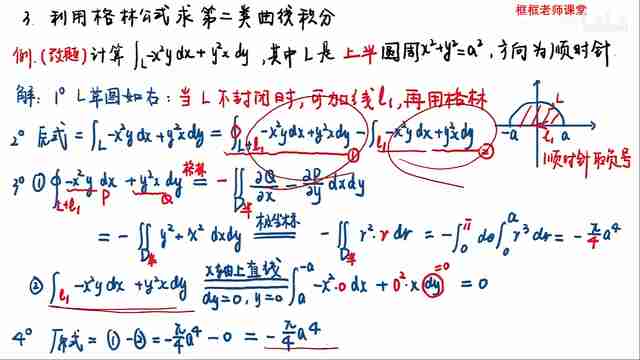 框框老师课堂
3. 利用格林公式求第二类曲线积分
例.(改题)计算∫_L -x²y dx + y²x dy ,其中L是上半圆周x²+y²=a²,方向为顺时针.
解: 1° L草图如右:当L不封闭时,可加线l₁,再用格林
L
-a l₁ a
顺时针取负号
2° 原式=∫_L -x²y dx + y²x dy = ∮_{L+l₁} -x²y dx + y²x dy - ∫_{l₁} -x²y dx + y²x dy
① ②
3° ① ∮_{L+l₁} -x²y dx + y²x dy 格林 = -∬_{D半} ∂Q/∂x - ∂P/∂y dxdy
P Q
= -∬_{D半} y²+x² dxdy 极坐标 = -∬_{D半} r²·r dr = -∫₀^π dθ∫₀^a r³dr = -π/4 a⁴
② ∫_{l₁} -x²y dx + y²x dy x轴上直线 dy=0, y=0 ∫_a^{-a} -x²·0 dx + 0²·x dy =0 = 0
4° 原式= ①-② = -π/4 a⁴ - 0 = -π/4 a⁴